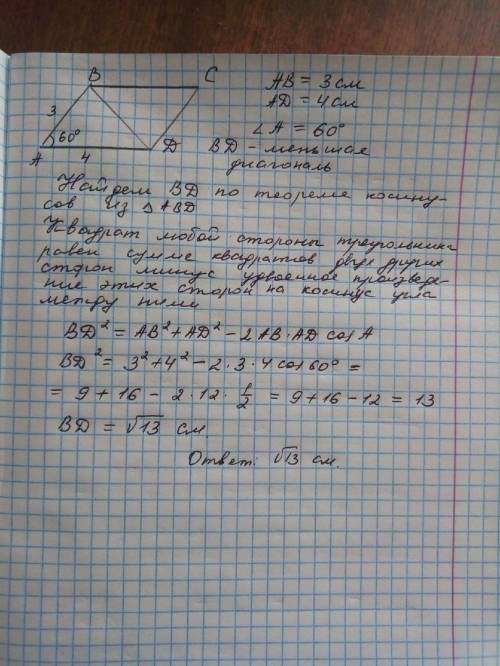 B C
3
60°
A 4 D
AB = 3 см
AD = 4 см
∠A = 60°
BD - меньшая
диагональ
Найдем BD по теореме косину-
сов Из △ABD
Квадрат любой стороны треугольника
равен сумме квадратов двух других
сторон минус удвоенное произведе-
ние этих сторон на косинус угла
между ними
BD² = AB² + AD² - 2 AB · AD cos A
BD² = 3² + 4² - 2 · 3 · 4 cos 60° =
= 9 + 16 - 2 · 12 · 1/2 = 9 + 16 - 12 = 13
BD = √13 см.
Ответ: √13 см.